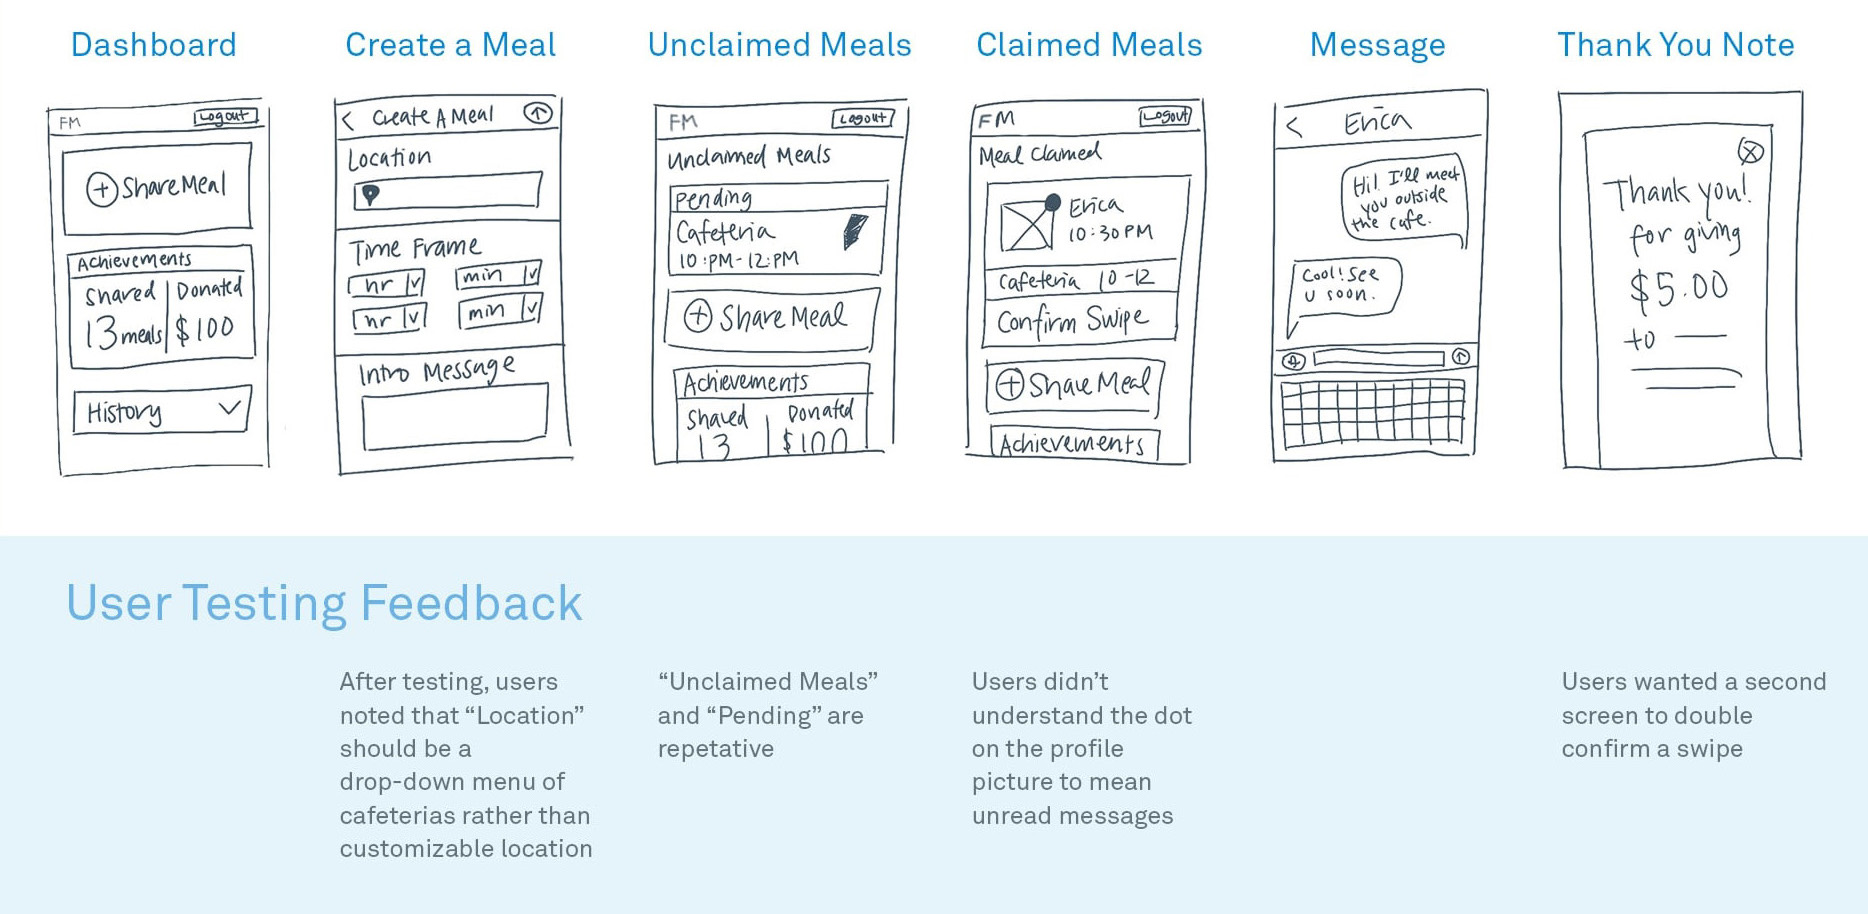 Dashboard
Create a Meal
Unclaimed Meals
Claimed Meals
Message
Thank You Note
FM
Logout
+ Share Meal
Achievements
Shared
Donated
13 meals
$100
History
Create A Meal
Location
Time Frame
hr
min
hr
min
Intro Message
FM
Logout
Unclaimed Meals
Pending
Cafeteria
10:PM-12:PM
+ Share Meal
Achievements
Shared
Donated
13
$100
FM
Logout
Meal Claimed
Erica
10:30PM
Cafeteria 10-12
Confirm Swipe
+ Share Meal
Achievements
Erica
Hi! I'll meet
you outside
the cafe.
Cool! See
u soon.
Thank you!
for giving
$5.00
to
User Testing Feedback
After testing, users
noted that “Location”
should be a
drop-down menu of
cafeterias rather than
customizable location
“Unclaimed Meals”
and “Pending” are
repetative
Users didn’t
understand the dot
on the profile
picture to mean
unread messages
Users wanted a second
screen to double
confirm a swipe